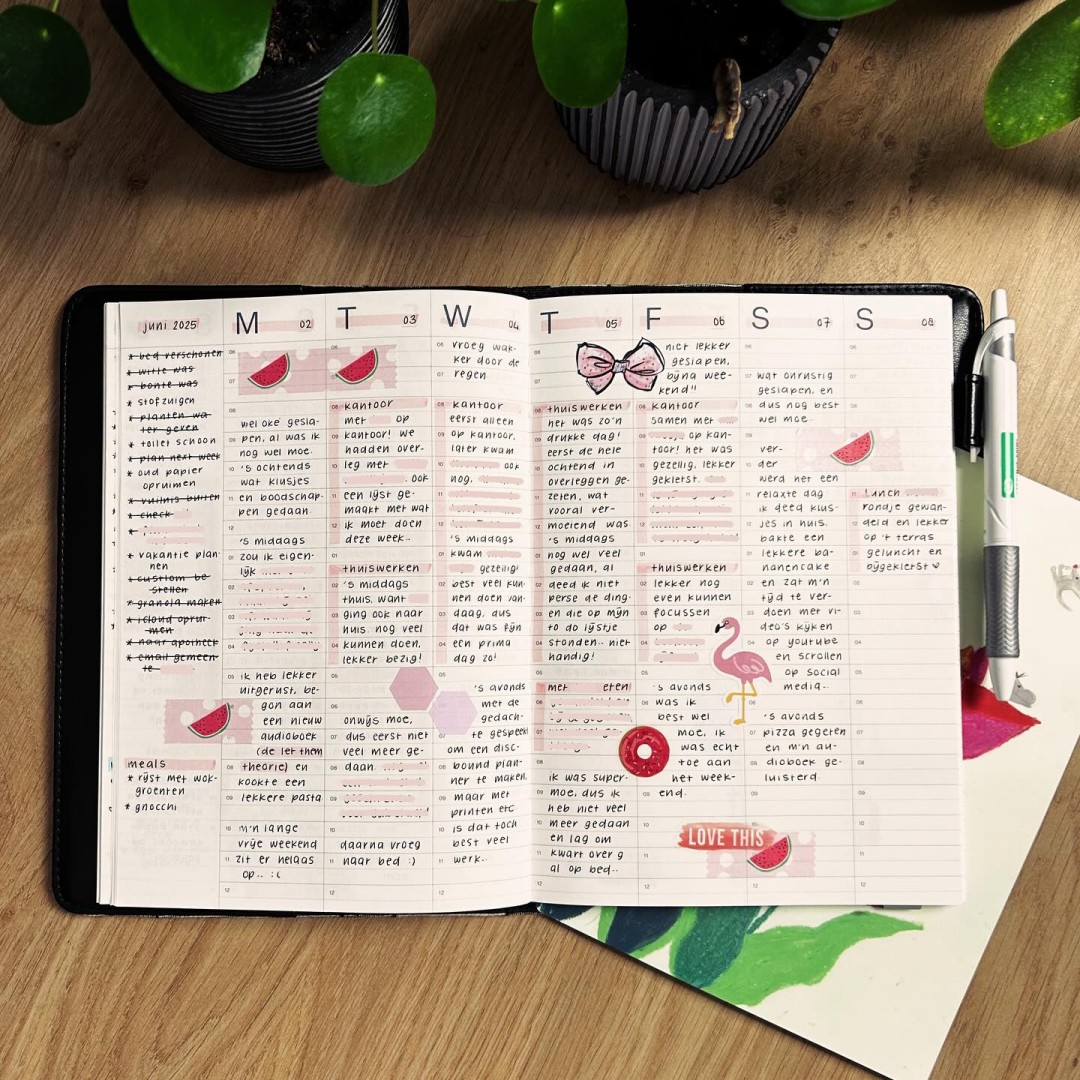 juni 2025
* bed verschonen
* witte was
* bonte was
* stofzuigen
* planten wa-
ter geven
* toilet schoon
* plan next week
* oud papier
opruimen
* vuilnis buiten
* check
* vakantie plan-
nen
* custom be-
stellen
* granola maken
* icloud oprui-
men
* naar apotheek
* email gemeen-
te
meals
* rijst met wok-
groenten
* gnocchi
M 02
wel oké gesla-
pen, al was ik
nog wel moe.
's ochtends
wat klusjes
en boodschap-
pen gedaan.
's middags
zou ik eigen-
lijk
ik heb lekker
uitgerust, be-
gon aan
een nieuw
audioboek
(de let them
theorie) en
kookte een
lekkere pasta.
m'n lange
vrije weekend
zit er helaas
op.. :(
T 03
kantoor
met op
kantoor! we
hadden over-
leg met
ook
een lijst ge-
maakt met wat
ik moet doen
deze week..
thuiswerken
's middags
thuis, want
ging ook naar
huis. nog veel
kunnen doen,
lekker bezig!
onwijs moe,
dus eerst niet
veel meer ge-
daan.
daarna vroeg
naar bed :)
W 04
vroeg wak-
ker door de
regen
kantoor
eerst alleen
op kantoor,
later kwam
ook
nog.
's middags
kwam
gezellig!
best veel kun-
nen doen van-
daag, dus
dat was fijn
een prima
dag zo!
's avonds
met de
gedach-
te gespeeld
om een disc-
bound plan-
ner te maken,
maar met
printen etc
is dat toch
best veel
werk..
T 05
thuiswerken
het was zo'n
drukke dag!
eerst de hele
ochtend in
overleggen ge-
zeten, wat
vooral ver-
moeiend was.
's middags
nog wel veel
gedaan, al
deed ik niet
perse de ding-
en die op mijn
to do lijstje
stonden.. niet
handig!
met eten
ik was super-
moe, dus ik
heb niet veel
meer gedaan
en lag om
kwart over 9
al op bed..
F 06
niet lekker
geslapen,
bijna wee-
kend!!
kantoor
samen met
op kan-
toor! het was
gezellig, lekker
gekletst.
thuiswerken
lekker nog
even kunnen
focussen
op
's avonds
was ik
best wel
moe, ik
was echt
toe aan
het week-
end.
LOVE THIS
S 07
wat onrustig
geslapen, en
dus nog best
wel moe.
ver-
der
werd het een
relaxte dag
ik deed klus-
jes in huis,
bakte een
lekkere ba-
nanencake
en zat m'n
tijd te ver-
doen met vi-
deo's kijken
op youtube
en scrollen
op social
media..
's avonds
pizza gegeten
en m'n au-
dioboek ge-
luisterd.
S 08
lunch
rondje gewan-
deld en lekker
op 't terras
geluncht en
bijgekletst ♥